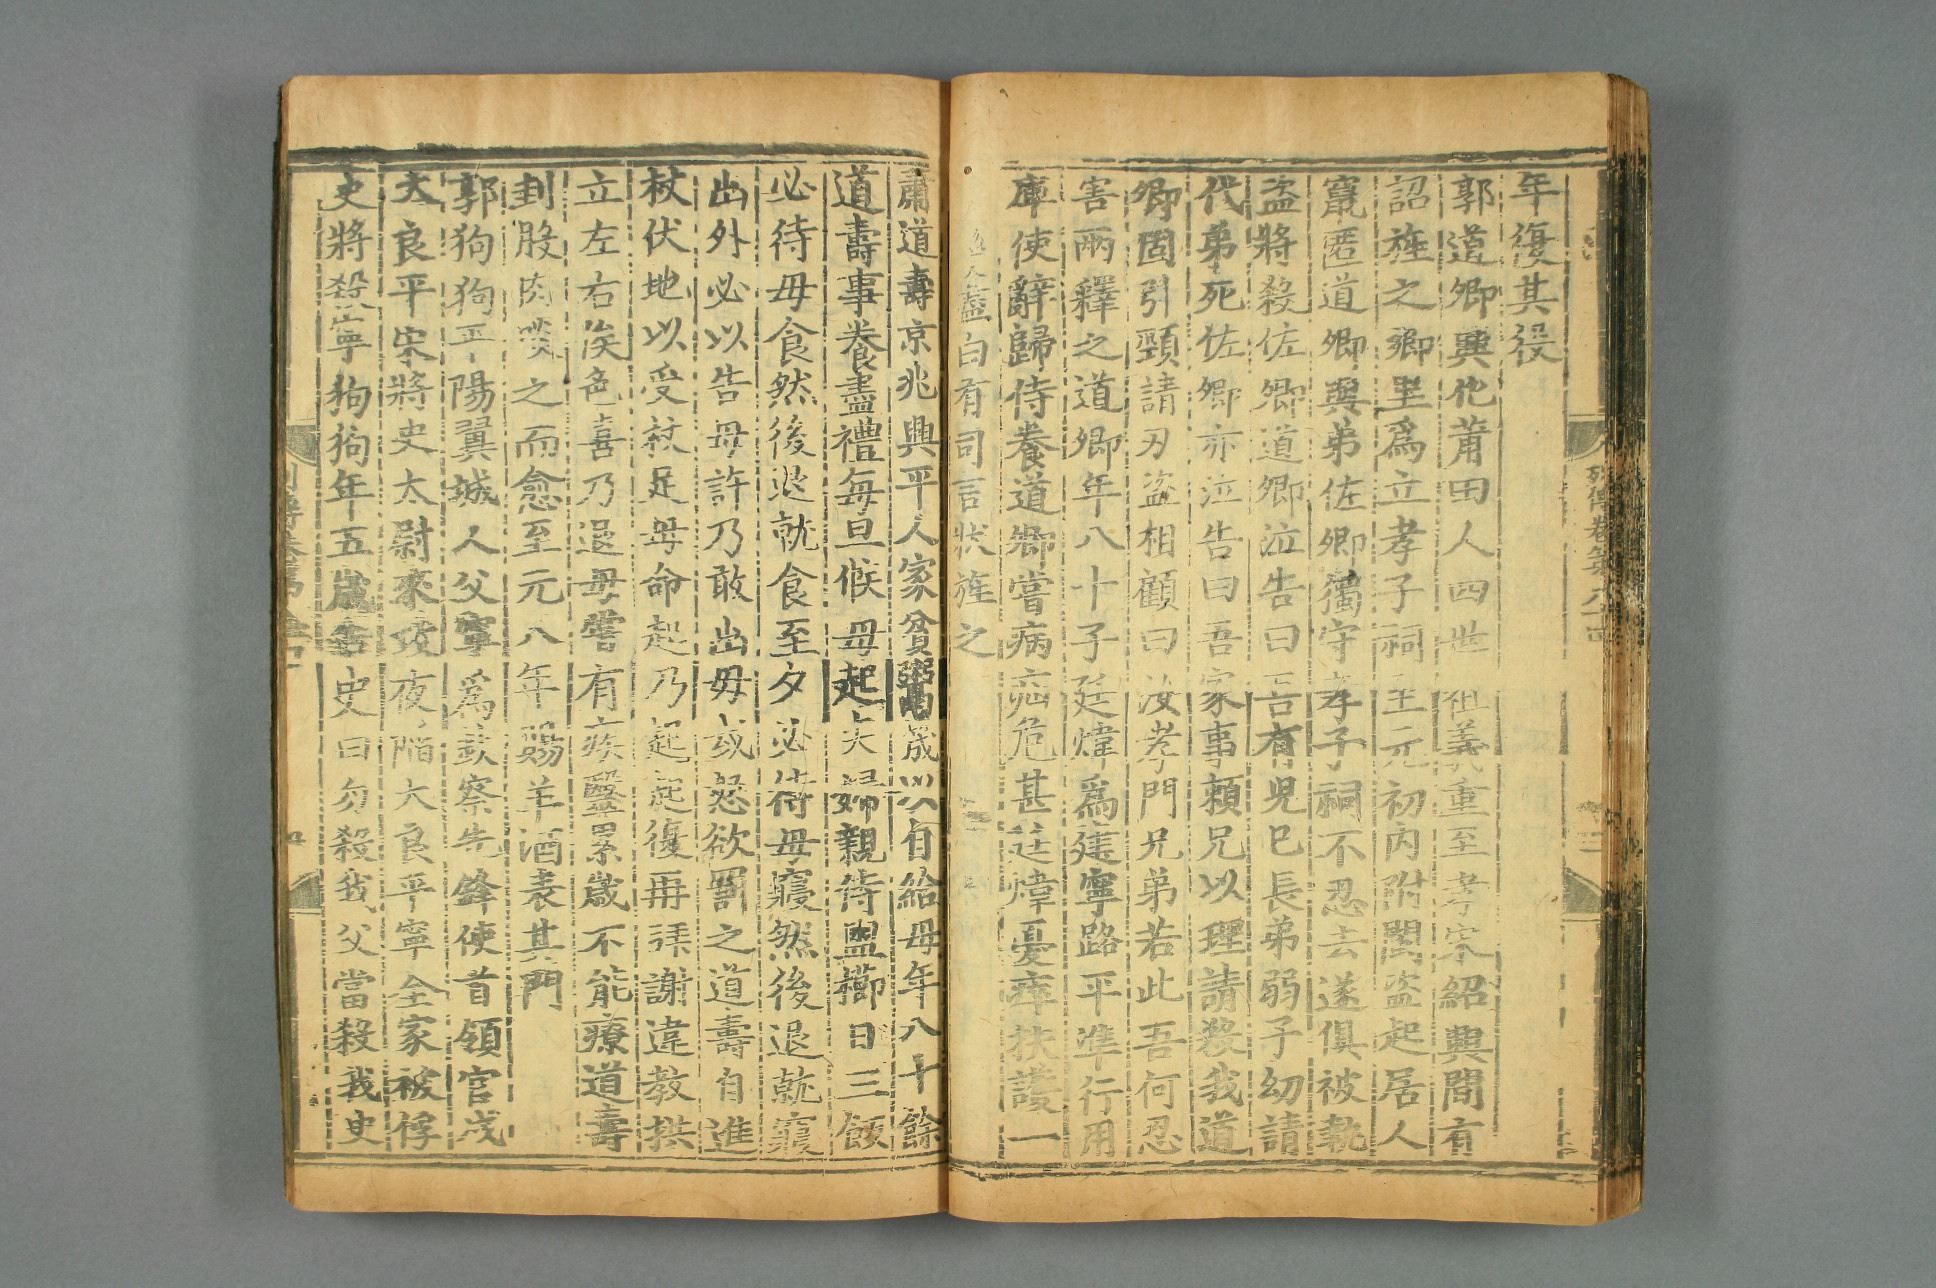 年復其役
郭道卿興化莆田人四世祖義重至孝宋紹興間有
詔旌之鄉里爲立孝子祠至元初內附閩盜起居人
竄匿道卿與弟佐卿獨守孝子祠不忍去遂俱被執
盜將殺佐卿道卿泣告曰吾有兒已長弟弱子幼請
代弟死佐卿亦泣告曰吾家事賴兄以理請殺我道
卿固引頸請刃盜相顧曰汝孝門兄弟若此吾何忍
害兩釋之道卿年八十子廷煒爲建寧路平準行用
庫使辭歸侍養道卿嘗病疝危甚廷煒憂瘁扶護一
白有司言狀旌之
肅道壽京兆興平人家貧鬻箴以自給母年八十餘
道壽事養盡禮每旦候母起夫婦親侍盥櫛日三飯
必待母食然後退就食至夕必待母寢然後退就寢
出外必以告母許乃敢出母或怒欲罰之道壽自進
杖伏地以受杖足母命起乃起起復再拜謝違教拱
立左右俟色喜乃退母嘗有疾醫累歲不能療道壽
刲股肉啖之而愈至元八年賜羊酒表其門
郭狗狗平陽翼城人父寧爲欽察先鋒使首領官戍
大良平宋將史太尉來攻夜陷大良平寧全家被俘
史將殺寧狗狗年五歲告史曰勿殺我父當殺我史
列傳卷第八十四